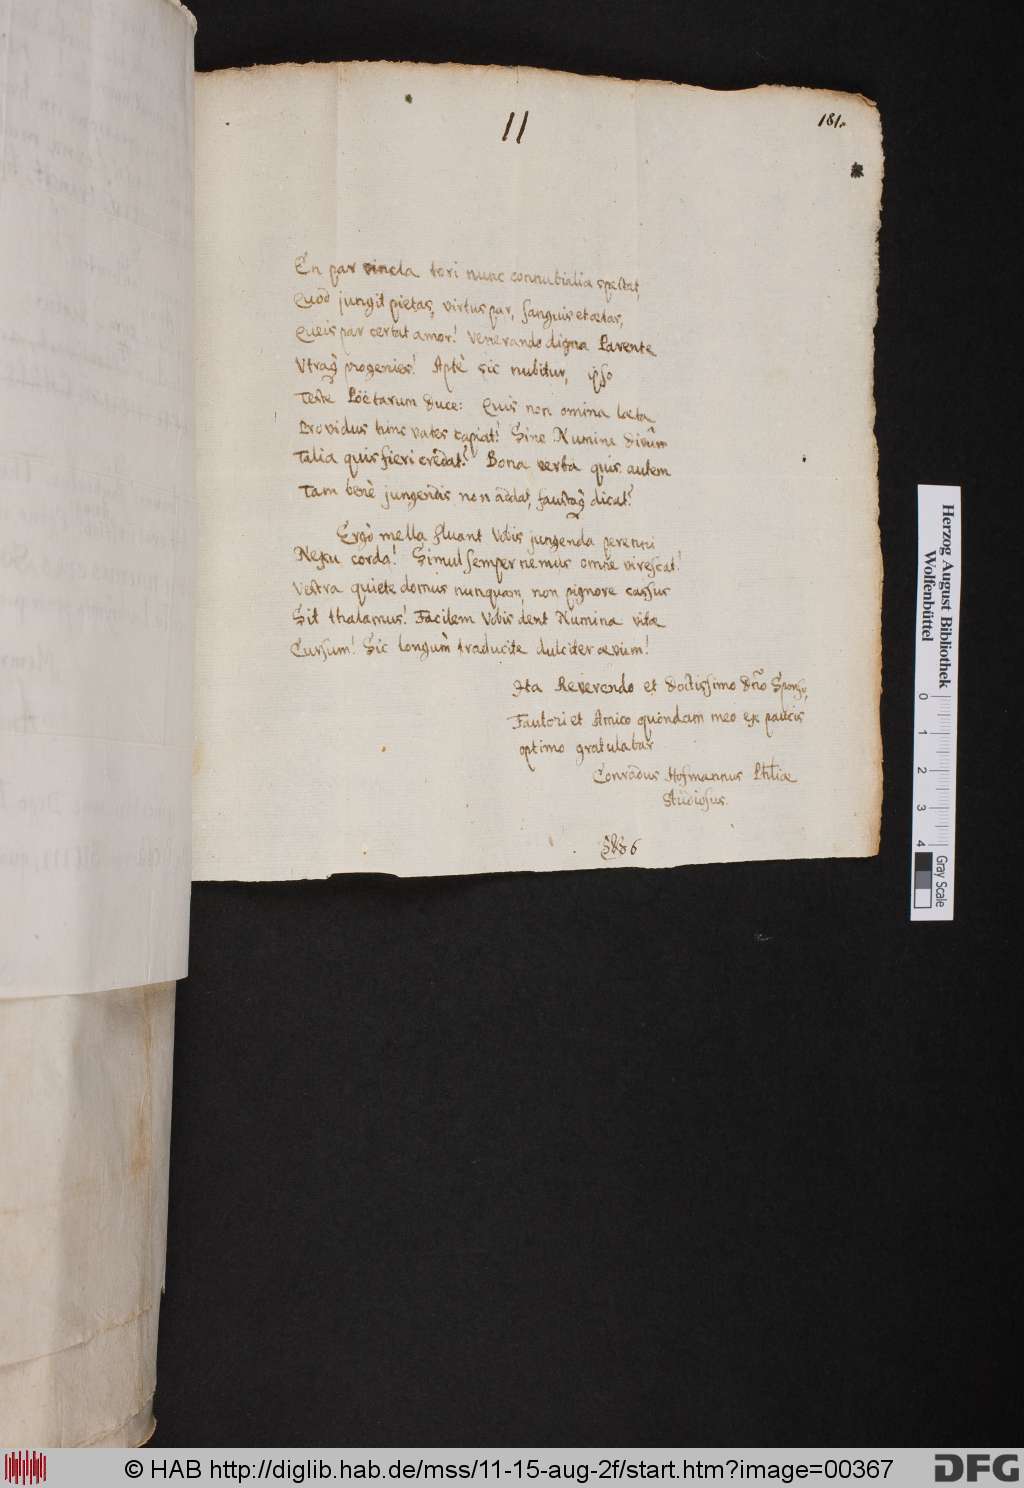 11
181.
En par vincla tori nunc connubialia spectat,
Quod jungit pietas, virtus par, sanguis et ætas,
Queis par certat amor! Venerando digna Parente
Utraq progenies! Aptè sic nubitur, ipso
Teste Poëtarum duce: Quis non omina læta
Providus hinc vates capiat! Sine Numine divûm
Talia quis fieri credat? Bona verba quis autem
Tam benè jungendis non addat, faustaq dicat?
Ergò mella fluant Vobis jungenda perenni
Nexu corda! Simul semper nemus omne virescat!
Vestra quiete domus nunquam, non pignore cassus
Sit thalamus! Facilem Vobis dent Numina vitæ
Cursum! Sic longum traducite dulciter ævum!
Ita Reverendo et doctissimo Dño Sponso,
Fautori et Amico quondam meo ex paucis
optimo gratulabar
Conradus Hofmannus Phliæ
Studiosus.
Herzog August Bibliothek
Wolfenbüttel
0 1 2 3 4
Gray Scale
© HAB http://diglib.hab.de/mss/11-15-aug-2f/start.htm?image=00367
DFG